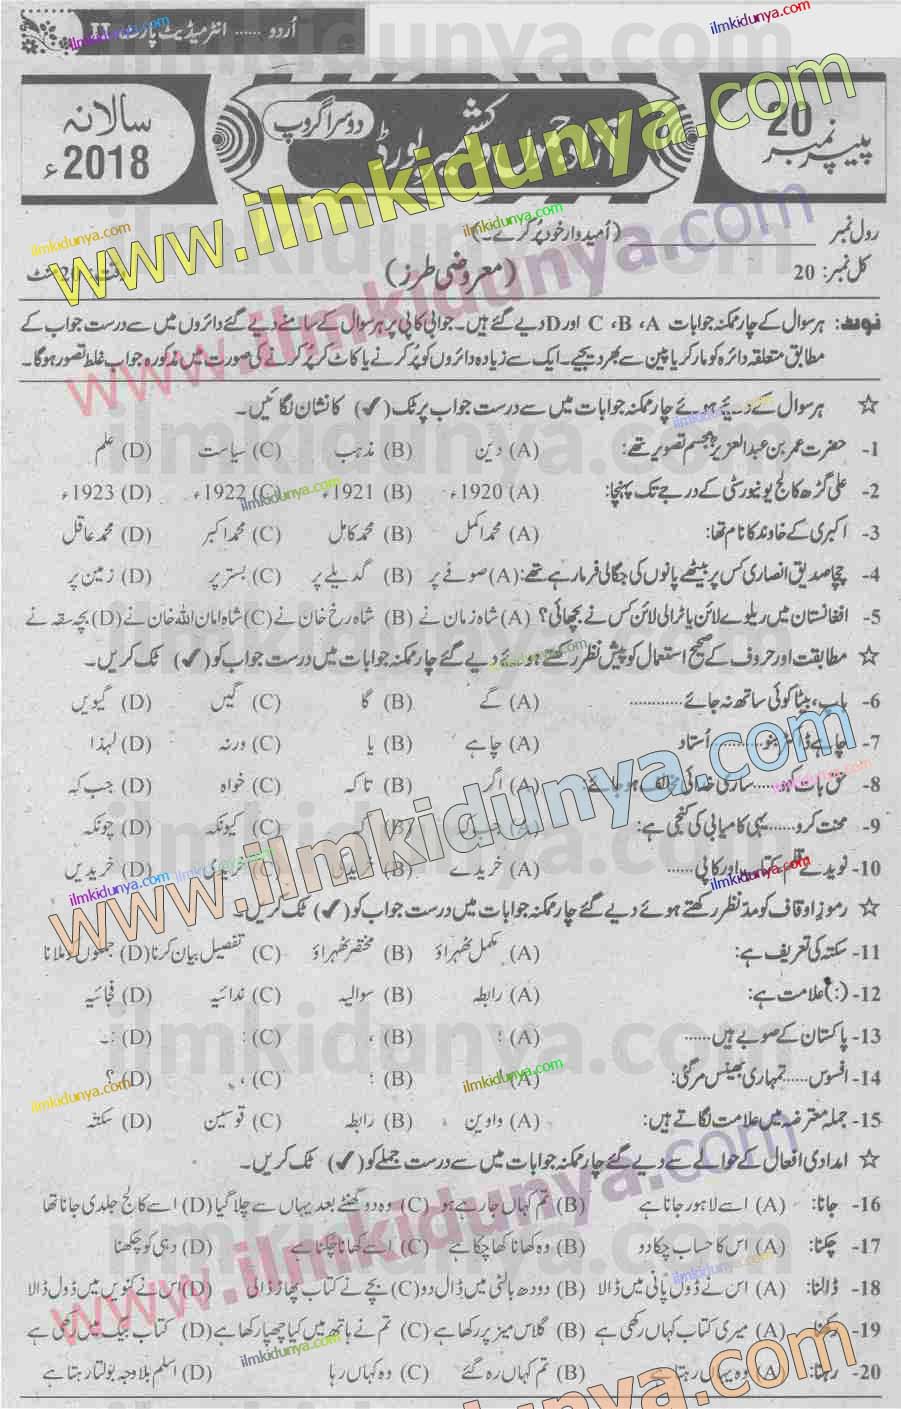 اُردو ...... انٹرمیڈیٹ پارٹ - II
پیپر نمبر 20
آزاد جموں و کشمیر بورڈ
دوسرا گروپ
سالانہ 2018ء
رول نمبر ____________ (اُمیدوار خود پُر کرے۔)
کل نمبر: 20 (معروضی طرز)
نوٹ: ہر سوال کے چار ممکنہ جوابات A، B، C اور D دیے گئے ہیں۔ جوابی کاپی پر ہر سوال کے سامنے دیے گئے دائروں میں سے درست جواب کے
مطابق متعلقہ دائرہ کو مارکر یا پین سے بھر دیجیے۔ ایک سے زیادہ دائروں کو پُر کرنے یا کاٹ کر پُر کرنے کی صورت میں مذکورہ جواب غلط تصور ہوگا۔
☆ ہر سوال کے دیے ہوئے چار ممکنہ جوابات میں سے درست جواب پر ٹک (✓) کا نشان لگائیں۔
1- حضرت عمر بن عبدالعزیزؒ مجسم تصویر تھے: (A) دین (B) مذہب (C) سیاست (D) علم
2- علی گڑھ کالج یونیورسٹی کے درجے تک پہنچا: (A) 1920ء (B) 1921ء (C) 1922ء (D) 1923ء
3- اکبری کے خاوند کا نام تھا: (A) محمد اکمل (B) محمد کامل (C) محمد اکبر (D) محمد عاقل
4- چچا صدیق انصاری کس پر بیٹھے پانوں کی جگالی فرما رہے تھے: (A) صوفے پر (B) گدیلے پر (C) بستر پر (D) زمین پر
5- افغانستان میں ریلوے لائن یا ٹرالی لائن کس نے بچھائی؟ (A) شاہ زمان نے (B) شاہ رخ خان نے (C) شاہ امان اللہ خان نے (D) بچہ سقہ نے
☆ مطابقت اور حروف کے صحیح استعمال کو پیش نظر رکھتے ہوئے دیے گئے چار ممکنہ جوابات میں درست جواب کو (✓) ٹک کریں۔
6- باپ، بیٹا کوئی ساتھ نہ جائے ............ (A) گے (B) گا (C) گیں (D) گیویں
7- چاہے ڈاکٹر بنو ............ اُستاد (A) چاہے (B) یا (C) ورنہ (D) لہٰذا
8- حق بات کہو ...... ساری خدائی مخالف ہو جائے: (A) اگر (B) تاکہ (C) خواہ (D) جب کہ
9- محنت کرو ...... یہی کامیابی کی کنجی ہے: (A) (B) (C) کیونکہ (D) چونکہ
10- نوید نے قلم، کتاب اور کاپی ...... (A) خریدے (B) خریدی (C) (D) خریدیں
☆ رموزِ اوقاف کو مدنظر رکھتے ہوئے دیے گئے چار ممکنہ جوابات میں درست جواب کو (✓) ٹک کریں۔
11- سکتہ کی تعریف ہے: (A) مکمل ٹھہراؤ (B) مختصر ٹھہراؤ (C) تفصیل بیان کرنا (D) جملوں کو ملانا
12- (:) علامت ہے: (A) رابطہ (B) سوالیہ (C) ندائیہ (D) فجائیہ
13- پاکستان کے صوبے ہیں ...... (A) ؛ (B) ، (C) : (D) :۔
14- افسوس ...... تمہاری بھینس مر گئی: (A) ! (B) : (C) ، (D) ؟
15- جملہ معترضہ میں علامت لگاتے ہیں: (A) واوین (B) رابطہ (C) قوسین (D) سکتہ
☆ امدادی افعال کے حوالے سے دیے گئے چار ممکنہ جوابات میں سے درست جملے کو (✓) ٹک کریں۔
16- جانا: (A) اسے لاہور جانا ہے (B) تم کہاں جا رہے ہو (C) وہ دو گھنٹے بعد یہاں سے چلا گیا (D) اسے کالج جلدی جانا تھا
17- چکنا: (A) اس کا حساب چکا دو (B) وہ کھانا کھا چکا ہے (C) اسے کھانا چکنا ہے (D) دہی کو چکھنا
18- ڈالنا: (A) اس نے ڈول پانی میں ڈالا (B) دودھ بالٹی میں ڈال دو (C) بچے نے کتاب پھاڑ ڈالی (D) اس نے کنویں میں ڈول ڈالا
19- رکھنا: (A) میری کتاب کہاں رکھی ہے (B) گلاس میز پر رکھا ہے (C) تم نے ہاتھ میں کیا چھپا رکھا ہے (D) کتاب بیگ میں رکھی ہے
20- رہنا: (A) وہ یہاں رہتا ہے (B) تم کہاں رہ گئے (C) وہ کہاں رہا (D) اسلم بلاوجہ بولتا رہتا ہے
www.ilmkidunya.com
ilmkidunya.com